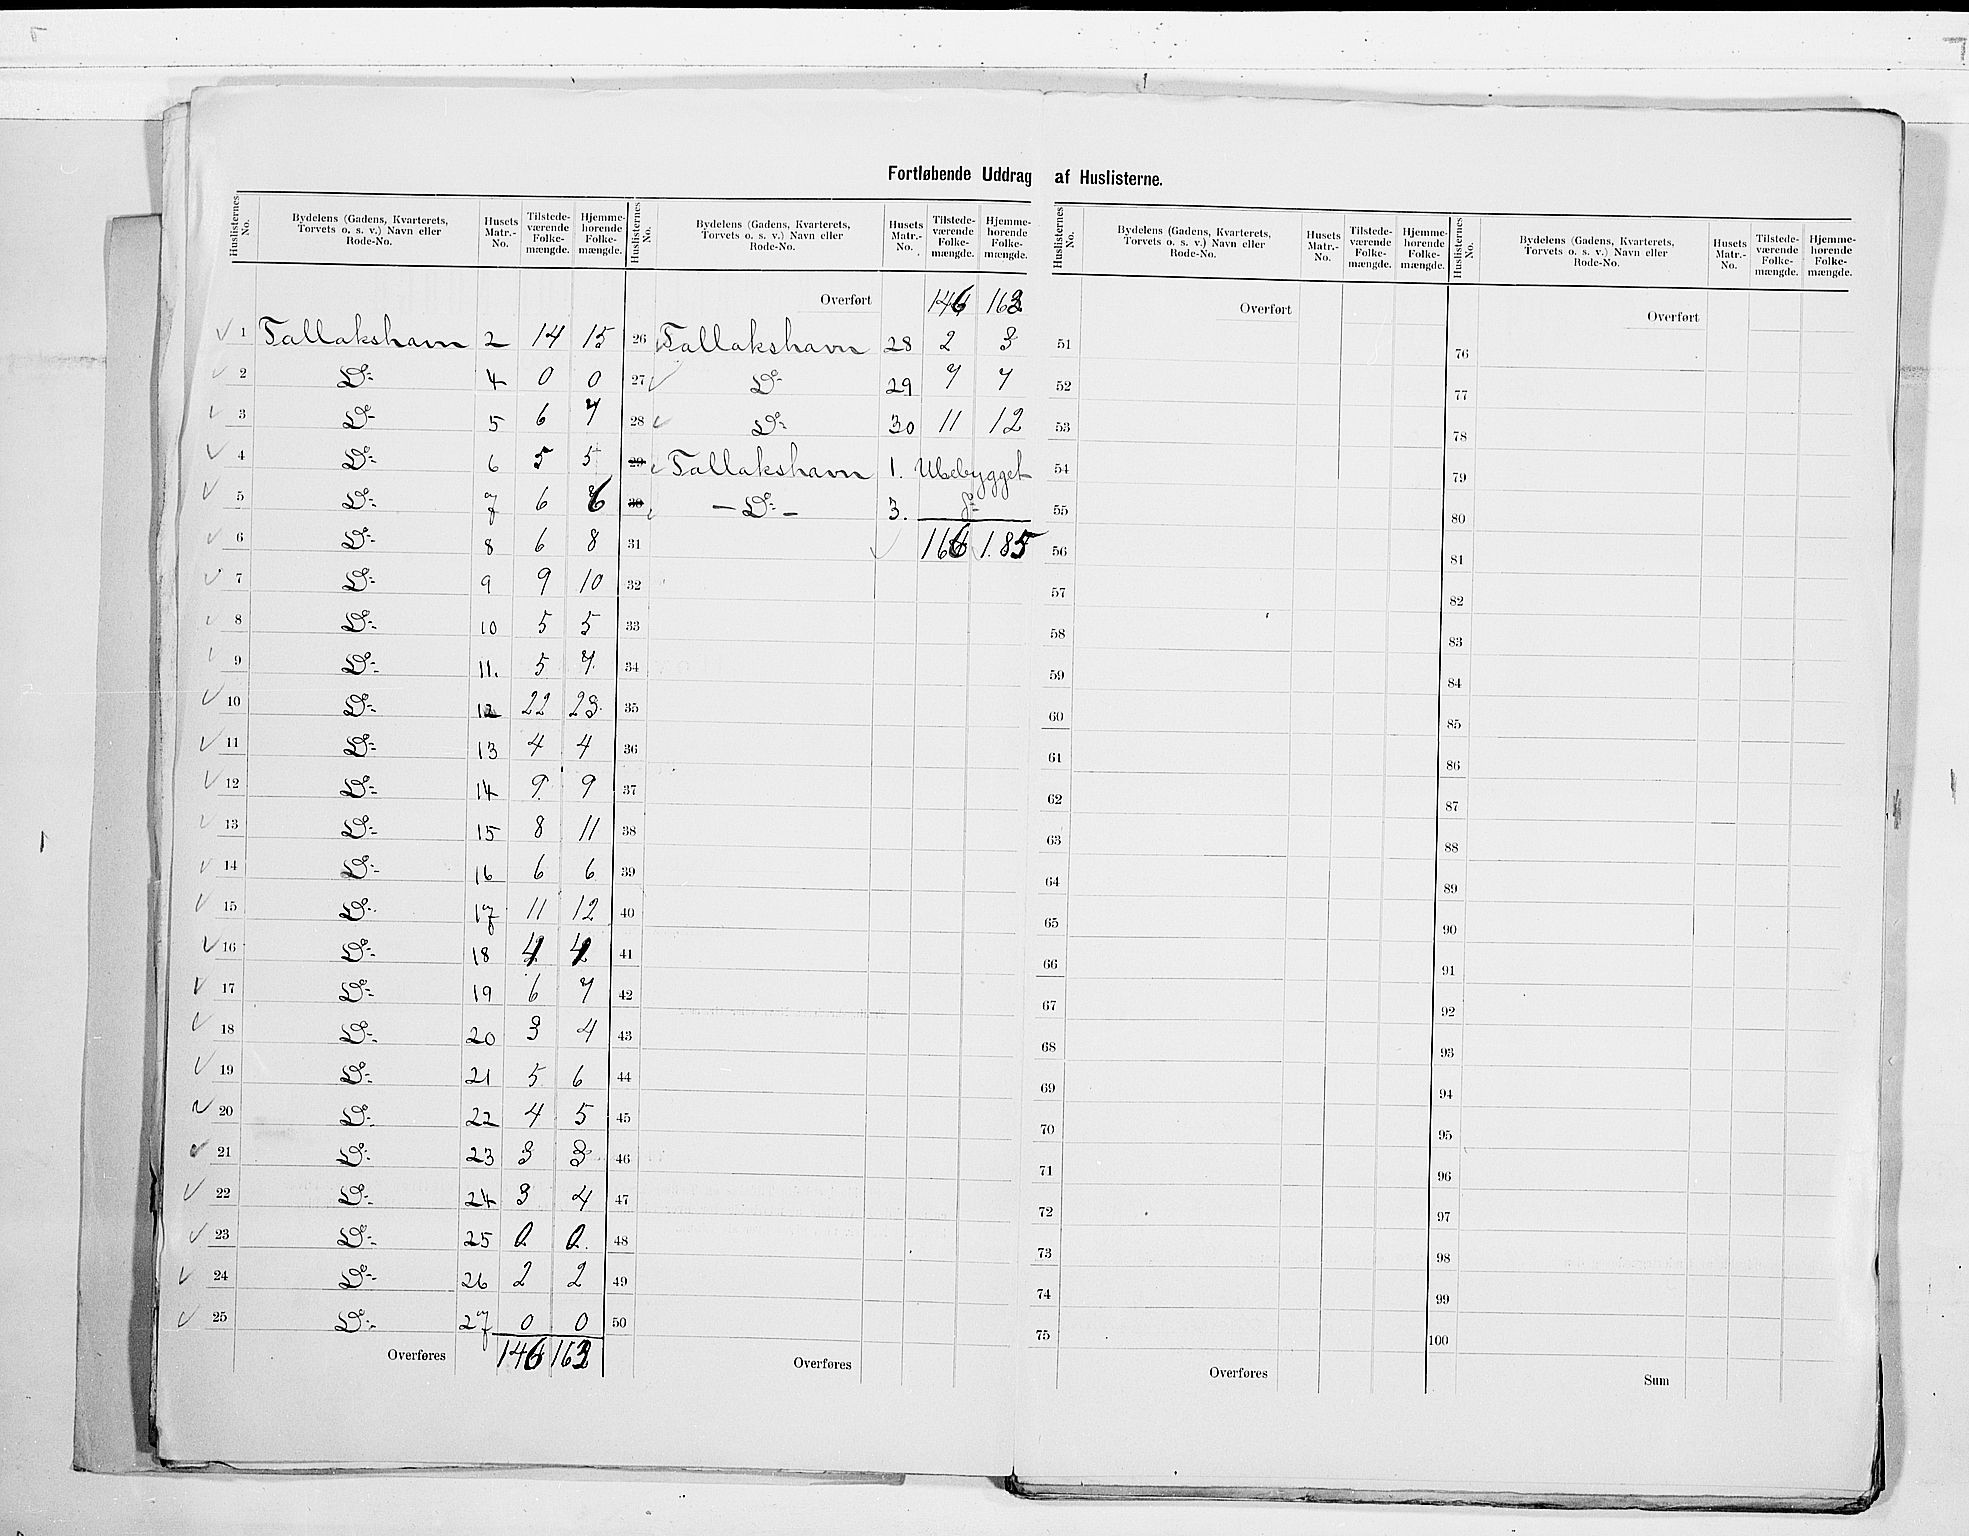 Fortløbende Uddrag af Huslisterne.
Huslisternes No. | Bydelens (Gadens, Kvarterets, Torvets o. s. v.) Navn eller Rode-No. | Husets Matr.-No. | Tilstedeværende Folkemængde. | Hjemmehørende Folkemængde.
1 Tallakshavn 2 14 15
2 Do 4 0 0
3 Do 5 6 7
4 Do 6 5 5
5 Do 7 6 6
6 Do 8 6 8
7 Do 9 9 10
8 Do 10 5 5
9 Do 11. 5 7
10 Do 12 22 23
11 Do 13 4 4
12 Do 14 9 9
13 Do 15 8 11
14 Do 16 6 6
15 Do 17 11 12
16 Do 18 4 4
17 Do 19 6 7
18 Do 20 3 4
19 Do 21 5 6
20 Do 22 4 5
21 Do 23 3 3
22 Do 24 3 4
23 Do 25 0 0
24 Do 26 2 2
25 Do 27 0 0
Overføres 146 163
Huslisternes No. | Bydelens (Gadens, Kvarterets, Torvets o. s. v.) Navn eller Rode-No. | Husets Matr.-No. | Tilstedeværende Folkemængde. | Hjemmehørende Folkemængde.
Overført 146 163
26 Tallakshavn 28 2 3
27 Do 29 7 7
28 Do 30 11 12
29 Tallakshavn 1. Ubebygget
30 - Do - 3. do
31 166 1.85
32
33
34
35
36
37
38
39
40
41
42
43
44
45
46
47
48
49
50
Overføres
Huslisternes No. | Bydelens (Gadens, Kvarterets, Torvets o. s. v.) Navn eller Rode-No. | Husets Matr.-No. | Tilstedeværende Folkemængde. | Hjemmehørende Folkemængde.
Overført
51
52
53
54
55
56
57
58
59
60
61
62
63
64
65
66
67
68
69
70
71
72
73
74
75
Overføres
Huslisternes No. | Bydelens (Gadens, Kvarterets, Torvets o. s. v.) Navn eller Rode-No. | Husets Matr.-No. | Tilstedeværende Folkemængde. | Hjemmehørende Folkemængde.
Overført
76
77
78
79
80
81
82
83
84
85
86
87
88
89
90
91
92
93
94
95
96
97
98
99
100
Sum